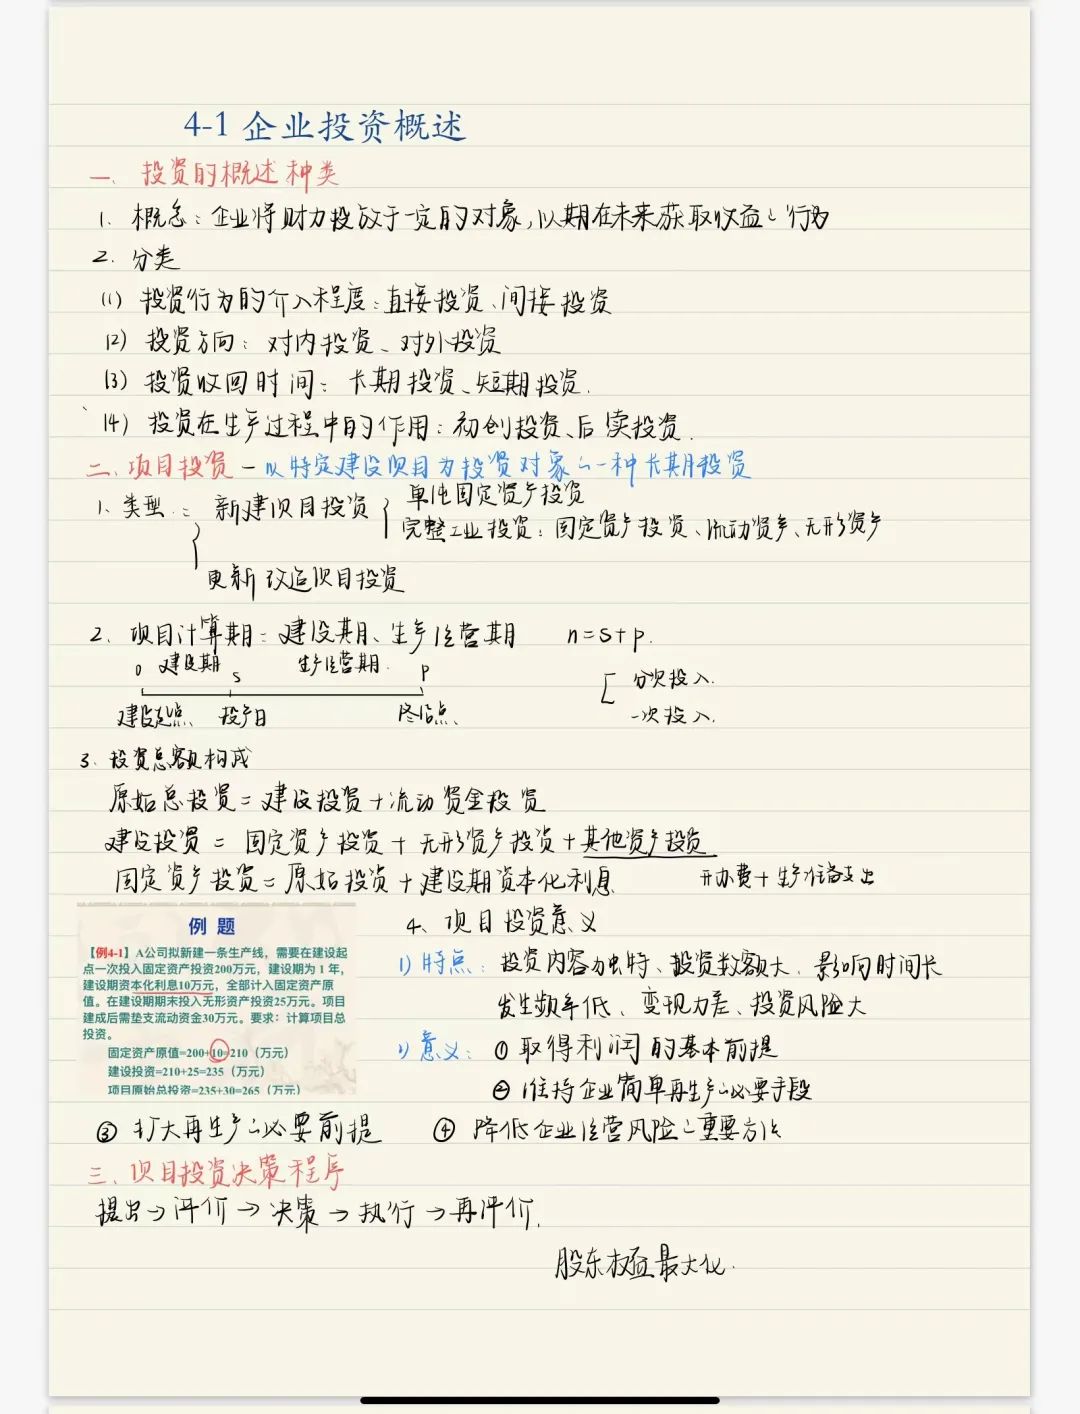 4-1 企业投资概述
一、投资的概述种类
1. 概念：企业将财力投放于一定的对象，以期在未来获取收益之行为
2. 分类
(1) 投资行为的介入程度：直接投资、间接投资
(2) 投资方向：对内投资、对外投资
(3) 投资收回时间：长期投资、短期投资.
(4) 投资在生产过程中的作用：初创投资、后续投资.
二、项目投资 — 以特定建设项目为投资对象的一种长期投资
单纯固定资产投资
1. 类型： 新建项目投资
完整工业投资：固定资产投资、流动资产、无形资产
更新改造项目投资
2. 项目计算期：建设期、生产经营期 n=s+p.
0 建设期 s 生产经营期. p
分次投入.
建设起点、 投产日 终结点、 一次投入.
3. 投资总额构成
原始总投资=建设投资+流动资金投资
建设投资 = 固定资产投资+无形资产投资+其他资产投资
固定资产投资=原始投资+建设期资本化利息 开办费+生产准备支出
例 题
【例4-1】A公司拟新建一条生产线，需要在建设起
点一次投入固定资产投资200万元，建设期为 1 年，
建设期资本化利息10万元，全部计入固定资产原
值。在建设期期末投入无形资产投资25万元。项目
建成后需垫支流动资金30万元。要求：计算项目总
投资。
固定资产原值=200+10=210（万元）
建设投资=210+25=235（万元）
项目原始总投资=235+30=265（万元）
4、项目投资意义
1) 特点：投资内容独特、投资数额大、影响时间长
发生频率低、变现力差、投资风险大
意义：① 取得利润的基本前提
② 维持企业简单再生产的必要手段
③ 扩大再生产的必要前提 ④ 降低企业经营风险之重要方法
三、项目投资决策程序
提出→评价→决策→执行→再评价.
股东权益最大化.